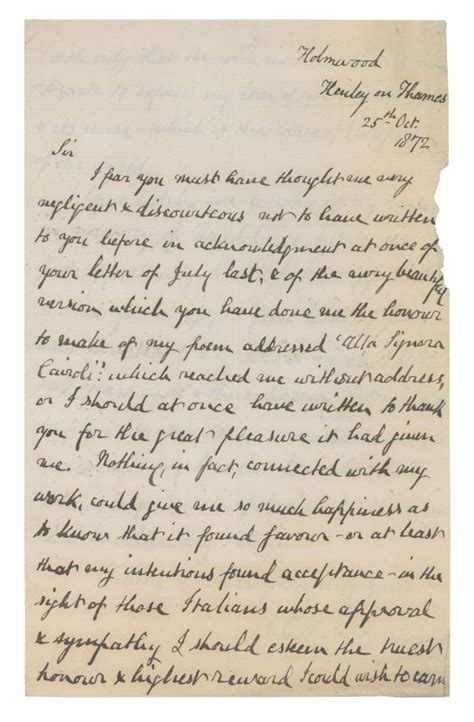 Holmwood
Henley on Thames
25th Oct.
1872
Sir
I fear you must have thought me very
negligent & discourteous not to have written
to you before in acknowledgment at once of
your letter of July last, & of the very beautiful
version which you have done me the honour
to make of my poem addressed 'Alla Signora
Cairoli': which reached me without address,
or I should at once have written to thank
you for the great pleasure it had given
me. Nothing, in fact, connected with my
work, could give me so much happiness as
to know that it found favour - or at least
that my intentions found acceptance - in the
sight of those Italians whose approval
& sympathy I should esteem the truest
honour & highest reward I could wish to earn